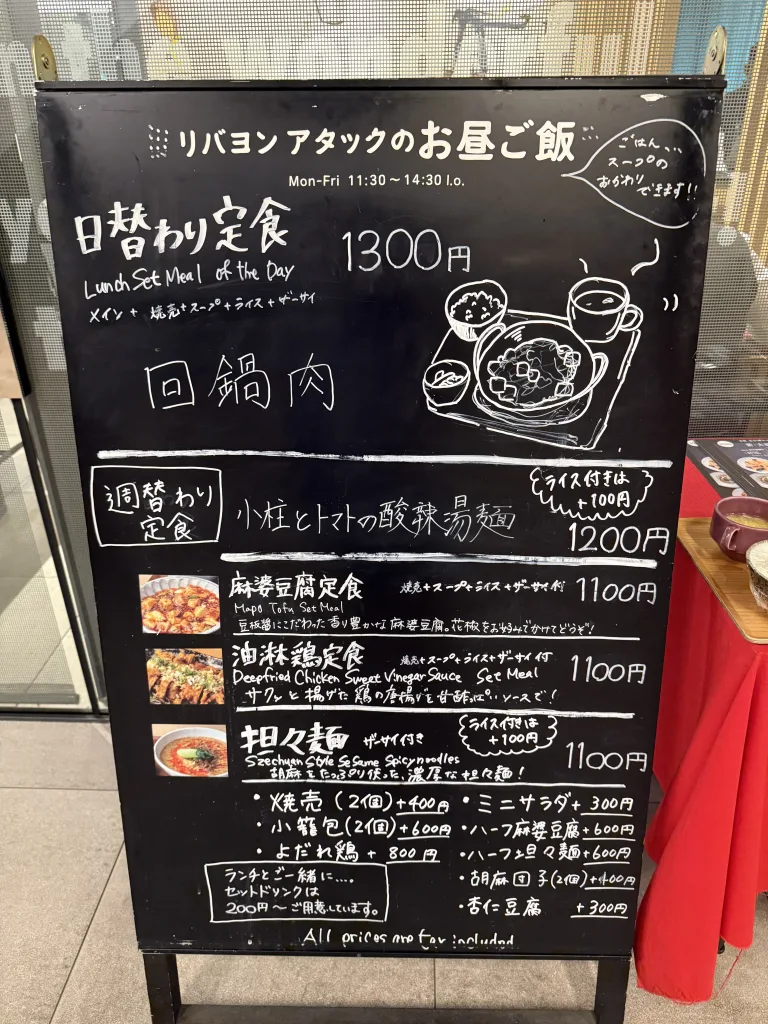 リバヨン アタックのお昼ご飯
Mon-Fri 11:30～14:30 l.o.
ごはん、、、
スープの
おかわり
できます!!
日替わり定食
1300円
Lunch Set Meal of the Day
メイン + 焼売+スープ+ライス+ザーサイ
回鍋肉
週替わり
定食
小柱とトマトの酸辣湯麺
ライス付きは
+100円
1200円
麻婆豆腐定食
焼売+スープ+ライス+ザーサイ付
1100円
Mapo Tofu Set Meal
豆板醤にこだわった香り豊かな麻婆豆腐。花椒をお好みでかけてどうぞ!
油淋鶏定食
焼売+スープ+ライス+ザーサイ付
1100円
Deepfried Chicken Sweet Vinegar Sauce Set Meal
サクッと揚げた鶏の唐揚げを甘酢っぱいソースで!
担々麺 ザーサイ付き
ライス付きは
+100円
1100円
Szechuan Style Sesame Spicy noodles
胡麻をたっぷり使った、濃厚な担々麺!
・焼売(2個)+400円
・小籠包(2個)+600円
・よだれ鶏+ 800円
・ミニサラダ+ 300円
・ハーフ麻婆豆腐+600円
・ハーフ担々麺+600円
・胡麻団子(2個)+400円
・杏仁豆腐 +300円
ランチとご一緒に....。
セットドリンクは
200円～ご用意しています。
All prices are tax included